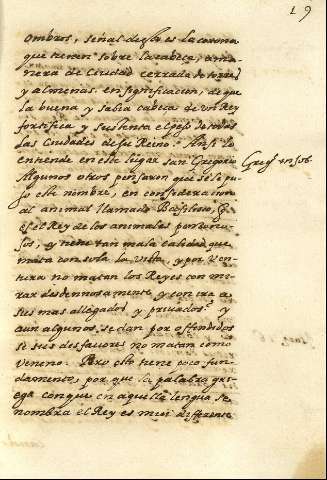 19
ombros, señal desto es la corona
que tienen sobre la cabeça, a ma
nera de Ciudad cerrada de torres
y almenas. en significacion, de que
la buena y sabia cabeça de un Rey
fortifica y sustenta el peso de todas
las Ciudades de su Reino. Ansi lo
entiende en este lugar san Gregorio
Greg. in Iob
Algunos otros pensaron que se le pu
so este nombre, en consideracion
al animal llamado Basilisco, q̃
es el Rey de los animales ponzoño
sos, y tiene tan mala calidad que
mata con sola la vista, y por ven
tura no matan los Reyes con mi
rar desdeñosamente, y con ira a
sus mas allegados, y privados? y
aun algunos se dan por offendidos
si sus desfavores no matan como
veneno. Pero esto tiene poco fun
damento, por que la palabra gri
ega con que en aquella lengua se
nombra el Rey es mui differente